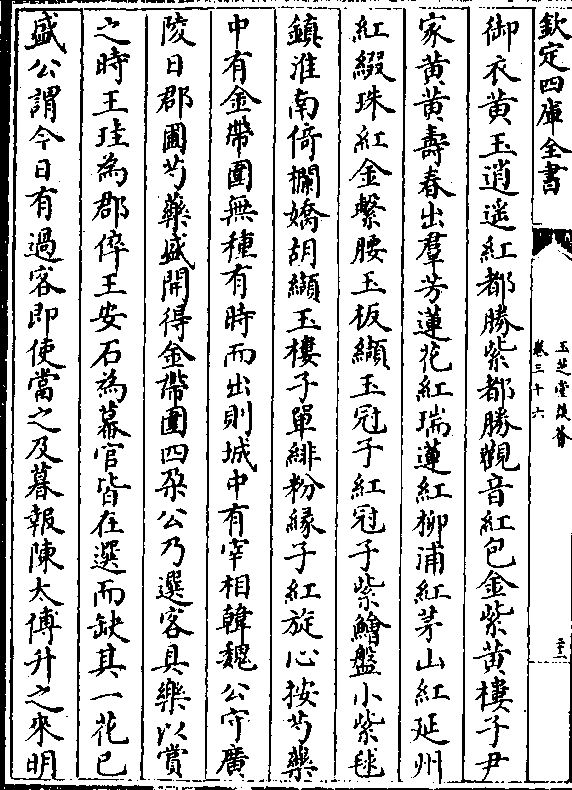 欽定四庫全書
玉芝堂談薈
卷三十六
御衣黄黄玉逍遥紅都勝紫都勝觀音紅包金紫黄樓子尹
家黄黄壽春出羣芳蓮花紅瑞蓮紅柳浦紅茅山紅延州
紅綴珠紅金繫腰玉板纈玉冠子紅冠子紫鱠盤小紫毬
鎮淮南倚欄嬌胡纈玉樓子單緋粉緣子紅旋心按芍藥
中有金帶圍無種有時而出則城中有宰相韓魏公守廣
陵日郡圃芍藥盛開得金帶圍四朶公乃選客具樂以賞
之時王珪為郡倅王安石為幕官皆在選而缺其一花已
盛公謂今日有過客即使當之及暮報陳太傅升之來明